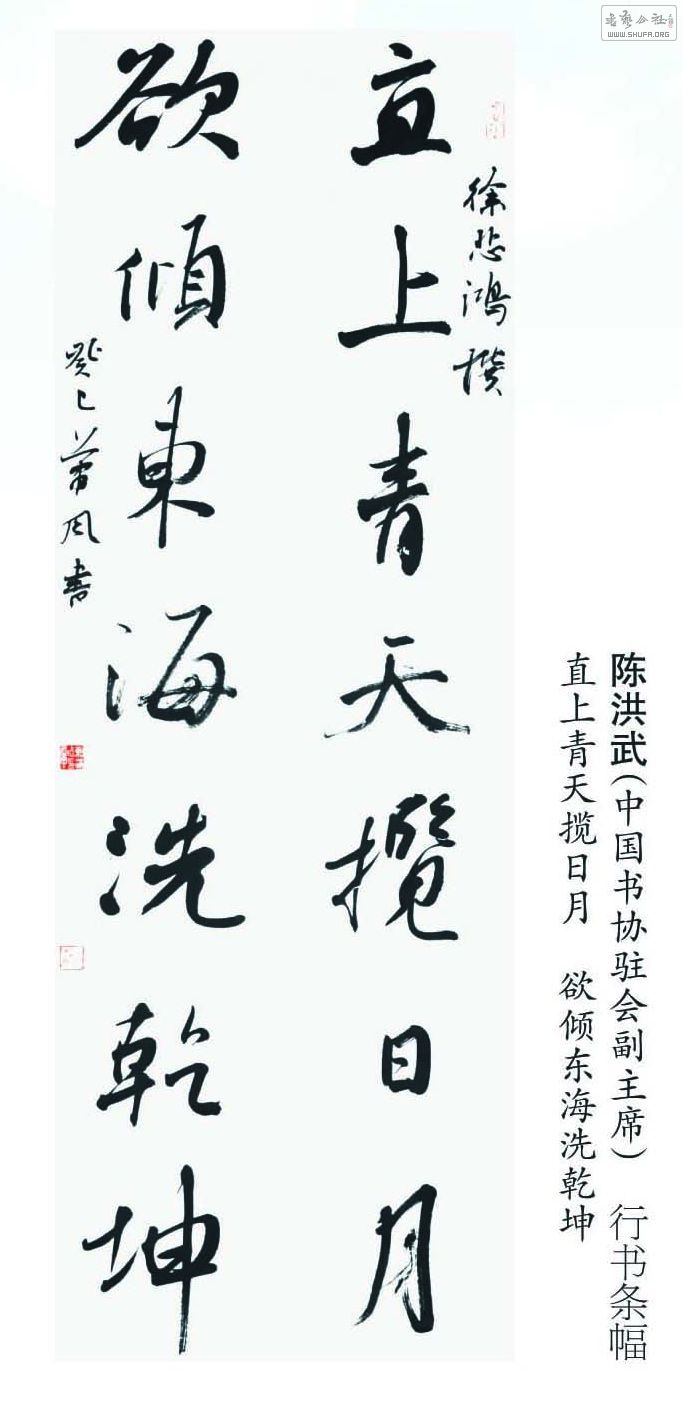 書藝公社
WWW.SHUFA.ORG
徐悲鴻撰
直上青天攬日月
欲傾東海洗乾坤
癸巳蕭風書
陈洪武(中国书协驻会副主席) 行书条幅
直上青天揽日月 欲倾东海洗乾坤